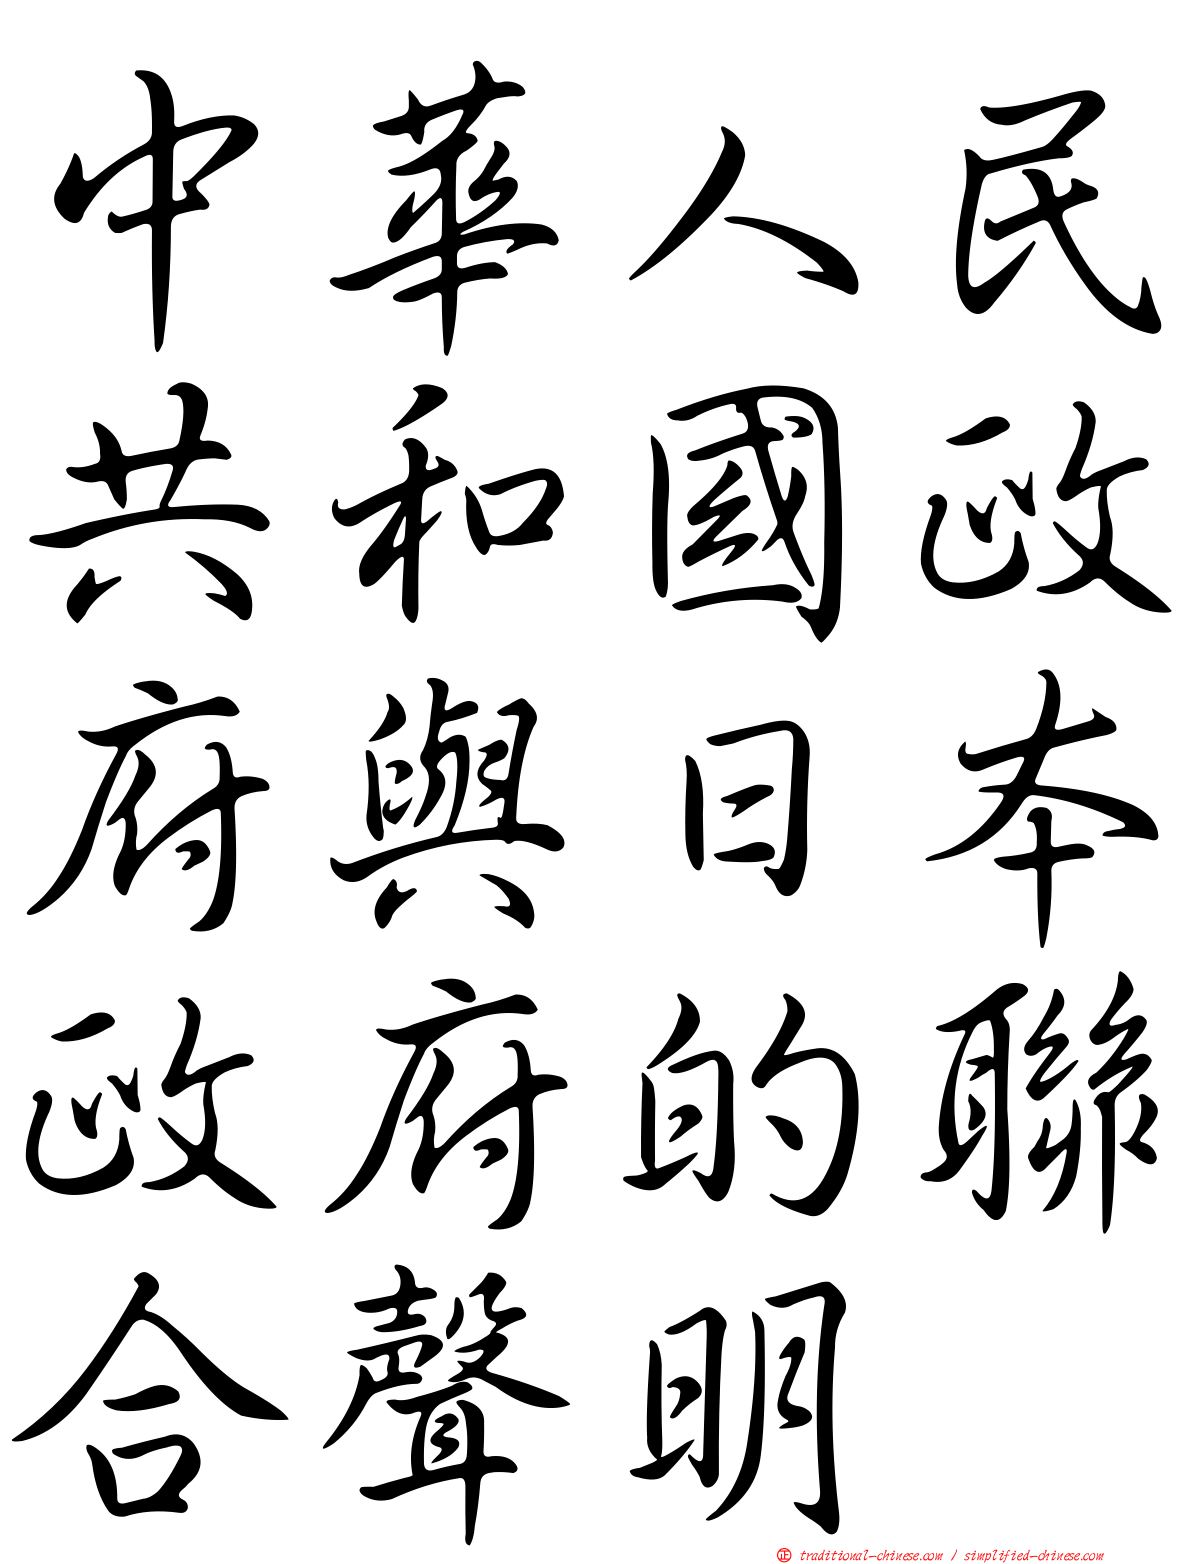 中華人民
共和國政
府與日本
政府的聯
合聲明
正 traditional-chinese.com / simplified-chinese.com